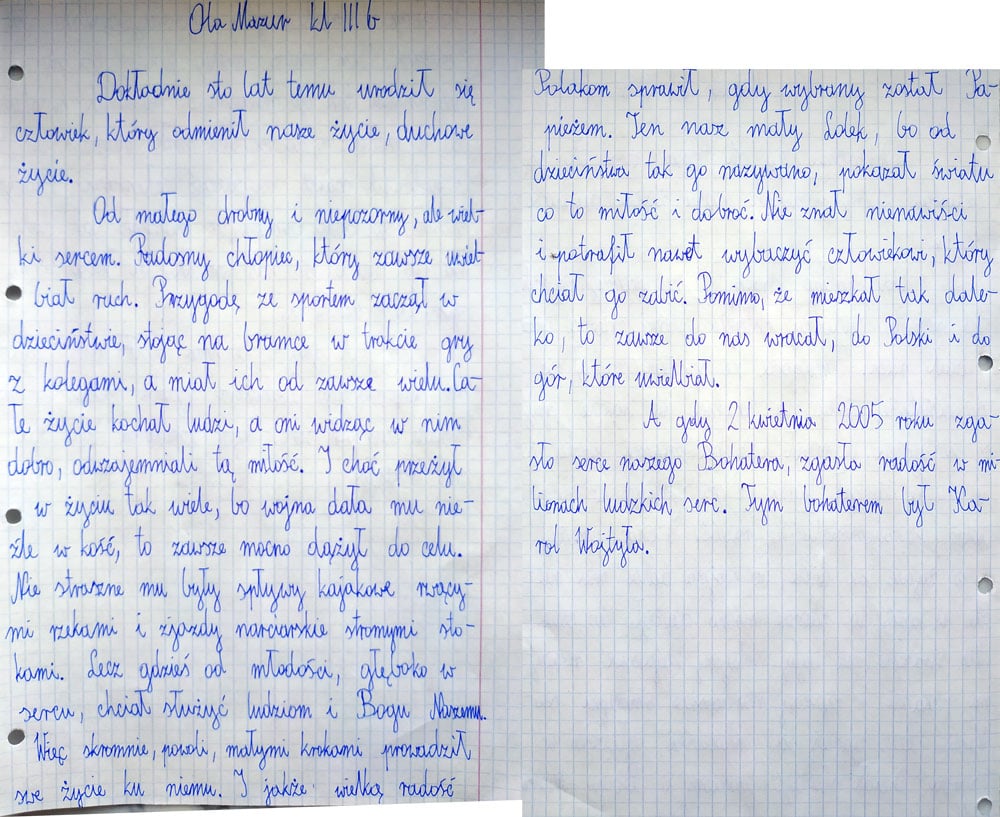 Ola Mazur kl III b
Dokładnie sto lat temu urodził się
człowiek, który odmienił nasze życie, duchowe
życie.
Od małego drobny i niepozorny, ale wiel-
ki sercem. Radosny chłopiec, który zawsze uwiel
biał ruch. Przygodę ze sportem zaczął w
dzieciństwie, stojąc na bramce w trakcie gry
z kolegami, a miał ich od zawsze wielu. Ca-
łe życie kochał ludzi, a oni widząc w nim
dobro, odwzajemniali tą miłość. I choć przeżył
w życiu tak wiele, bo wojna dała mu nie-
źle w kość, to zawsze mocno dążył do celu.
Nie straszne mu były spływy kajakowe rwący-
mi rzekami i zjazdy narciarskie stromymi sto-
kami. Lecz gdzieś od młodości, głęboko w
sercu, chciał służyć ludziom i Bogu Naszemu.
Więc skromnie, powoli, małymi krokami prowadził
swe życie ku niemu. I jakże wielką radość
Polakom sprawił, gdy wybrany został Pa-
pieżem. Ten nasz mały Lolek, bo od
dzieciństwa tak go nazywano, pokazał światu
co to miłość i dobroć. Nie znał nienawiści
i potrafił nawet wybaczyć człowiekowi, który
chciał go zabić. Pomimo, że mieszkał tak dale-
ko, to zawsze do nas wracał, do Polski i do
gór, które uwielbiał.
A gdy 2 kwietnia 2005 roku zga-
sło serce naszego Bohatera, zgasła radość w mi-
lionach ludzkich serc. Tym bohaterem był Ka-
rol Wojtyła.